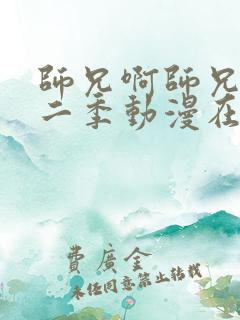 師兄啊師兄
二季動漫在
費廣金
未經同意禁止轉載